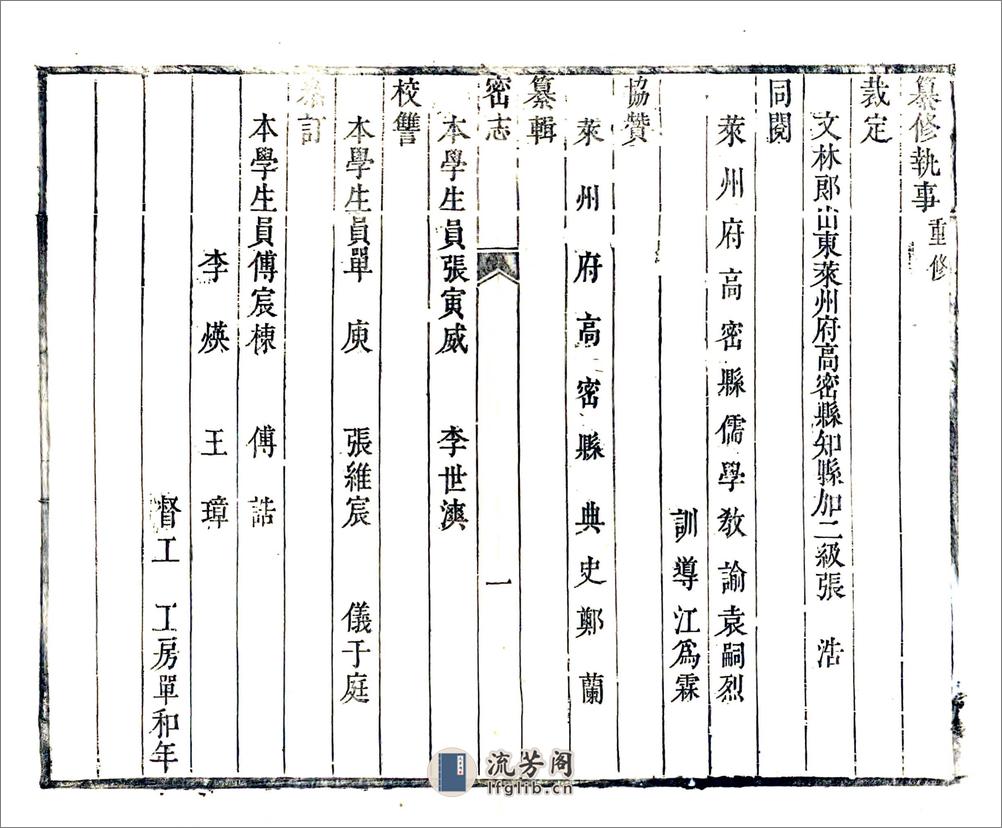 纂修執事重修
裁定
文林郎山東萊州府高密縣知縣加二級張浩
同閱
萊州府高密縣儒學教諭袁嗣烈
訓導江爲霖
協贊
萊州府高密縣典史鄭蘭
纂輯
密志 一
本學生員張寅威 李世㵂
校讐
本學生員單庾 張維宸 儀子庭
叅訂
本學生員傅宸楝 傅誥
李煐 王璋
督工 工房單和年
流芳阁
lfglib.cn